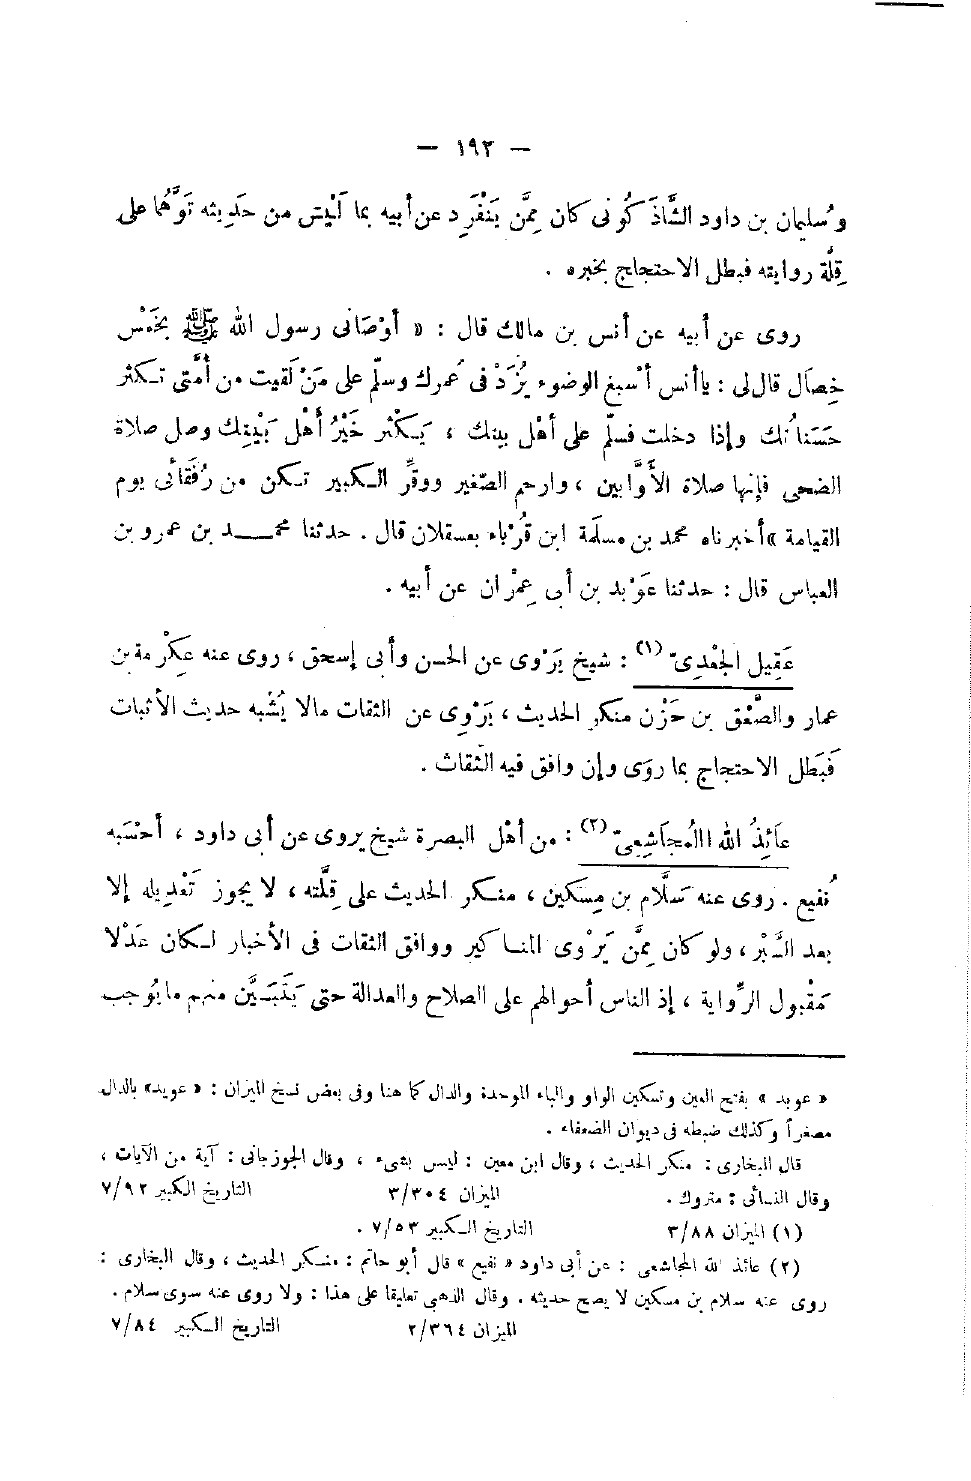 — ١٩٢ —
وسُليمان بن داود الشَّاذَ كُونى كان مِمَّن يَنْفَرِد عن أبيه بما لَيْس من حَدِيثه تَوَهُّما على
قِلَّة روايته فبطل الاحتجاج بخبره .
روى عن أبيه عن أنس بن مالك قال : « أوْصَانى رسول الله ﷺ بخَمْس
خِصَال قال لى : يا أنس أسْبغ الوضوء يُزَدْ فى عُمرك وسلّم على مَنْ لقيت من أُمَّتى تـكثر
حَسَناتُك وإذا دخلت فسلّم على أهْل بيتك ، يَـكْثر خَيْرُ أهْل بَيْتِك وصل صلاة
الضحى فإنها صلاة الأَوَّابين ، وارحم الصّغير ووقِّر الـكبير تـكن من رُفَقائى يوم
القيامة » أخبرناه محمد بن مسلَمة ابن قُرْباء بعسقلان قال . حدثنا محمـــد بن عمرو بن
العباس قال : حدثنا عَوْبد بن أبى عِمْران عن أبيه .
عَقِيل الجَعْدِىّ (١) : شيخ يَرْوى عن الحسن وأبى إسحق ، روى عنه عِكْرمة بن
عمار والصَّعْق بن حَزْن منكر الحديث ، يَرْوِى عن الثقات مالا يُشْبه حديث الأثبات
فَبَطل الاحتجاج بما روَى وإن وافق فيه الثّقاث .
عَائِذُ الله المُجَاشِعِىّ (٢) : من أهْل البصرة شيخ يروى عن أبى داود ، أحْسَبه
نُفيع . روى عنه سَلَّام بن مِسكين ، منـكر الحديث على قِلَّته ، لا يجوز تَعْديله إلا
بعد السَّبْر ، ولو كان مِمَّن يَرْوى المناكير ووافق الثقات فى الأخبار لـكان عَدْلا
مَقْبول الرِّواية ، إذ الناس أحوالهم على الصلاح والعدالة حتى يَتَبَيَّن منهم مايُوجب
« عوبد » بفتح العين وتسكين الواو والباء الموحدة والدال كما هنا وفى بعض نسخ الميزان : « عويد» بالدال
مصغراً وكذلك ضبطه فى ديوان الضعفاء .
قال البخارى : منكر الحديث ، وقال ابن معين : ليس بشىء ، وقال الجوزجانى : آية من الآيات ،
وقال النسائى : متروك . الميزان ٣/٣٠٤ التاريخ الكبير ٧/٩٢
(١) الميزان ٣/٨٨ التاريخ الـكبير ٧/٥٣ .
(٢) عائذ الله المجاشعى : عن أبى داود « نفيع » قال أبو حاتم : منـكر الحديث ، وقال البخارى :
روى عنه سلام بن مسكين لا يصح حديثه . وقال الذهبى تعليقا على هذا : ولا روى عنه سوى سلام .
الميزان ٢/٣٦٤ التاريخ الـكبير ٧/٨٤